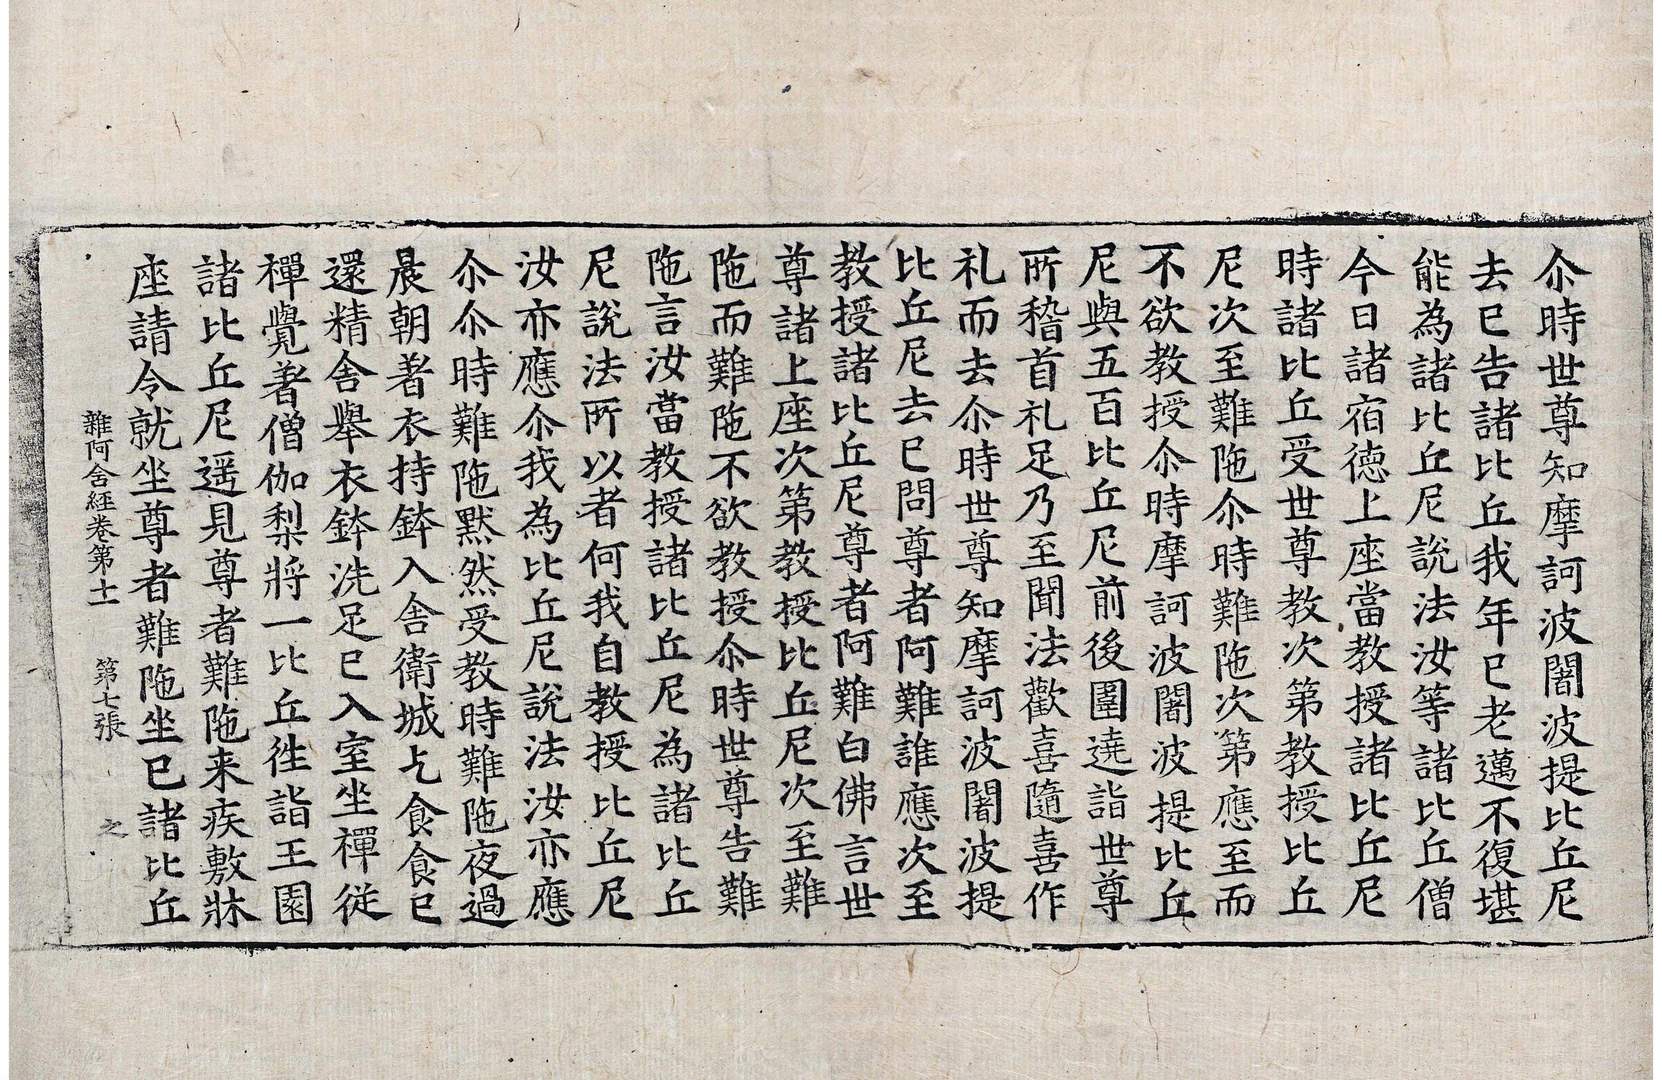 尒時世尊知摩訶波闍波提比丘尼
去已告諸比丘我年已老邁不復堪
能為諸比丘尼說法汝等諸比丘僧
今日諸宿德上座當教授諸比丘尼
時諸比丘受世尊教次第教授比丘
尼次至難陁尒時難陁次第應至而
不欲教授尒時摩訶波闍波提比丘
尼與五百比丘尼前後圍遶詣世尊
所稽首礼足乃至聞法歡喜隨喜作
礼而去尒時世尊知摩訶波闍波提
比丘尼去已問尊者阿難誰應次至
教授諸比丘尼尊者阿難白佛言世
尊諸上座次第教授比丘尼次至難
陁而難陁不欲教授尒時世尊告難
陁言汝當教授諸比丘尼為諸比丘
尼說法所以者何我自教授比丘尼
汝亦應尒我為比丘尼說法汝亦應
尒尒時難陁默然受教時難陁夜過
晨朝著衣持鉢入舍衛城乞食食已
還精舍舉衣鉢洗足已入室坐禪從
禪覺著僧伽梨將一比丘徃詣王園
諸比丘尼遥見尊者難陁来疾敷牀
座請令就坐尊者難陁坐已諸比丘
雜阿含經卷第十一 第七張 之